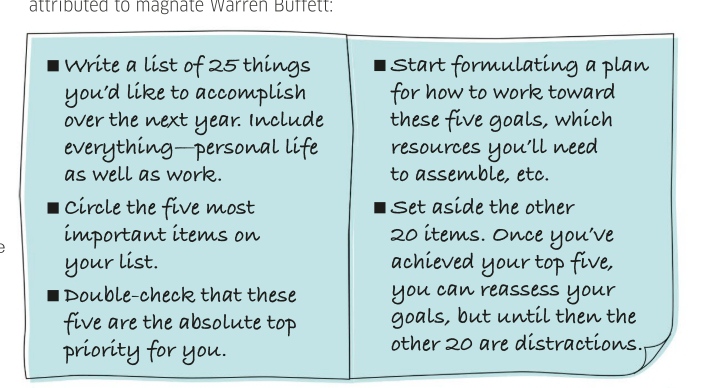 attributed to magnate Warren Buffett:
■ Write a list of 25 things
you'd like to accomplish
over the next year. Include
everything—personal life
as well as work.
■ Circle the five most
important items on
your list.
■ Double-check that these
five are the absolute top
priority for you.
■ Start formulating a plan
for how to work toward
these five goals, which
resources you'll need
to assemble, etc.
■ Set aside the other
20 items. Once you've
achieved your top five,
you can reassess your
goals, but until then the
other 20 are distractions.